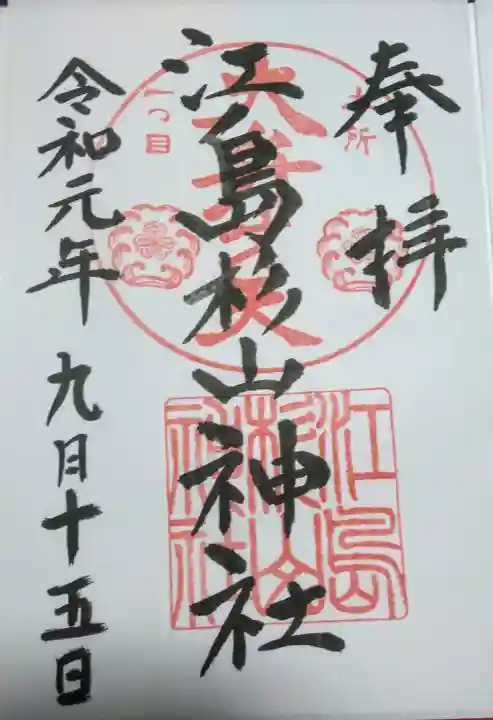 奉拝
江ノ島杉山神社
令和元年 九月十五日
本所
一つ目
江島杉山神社